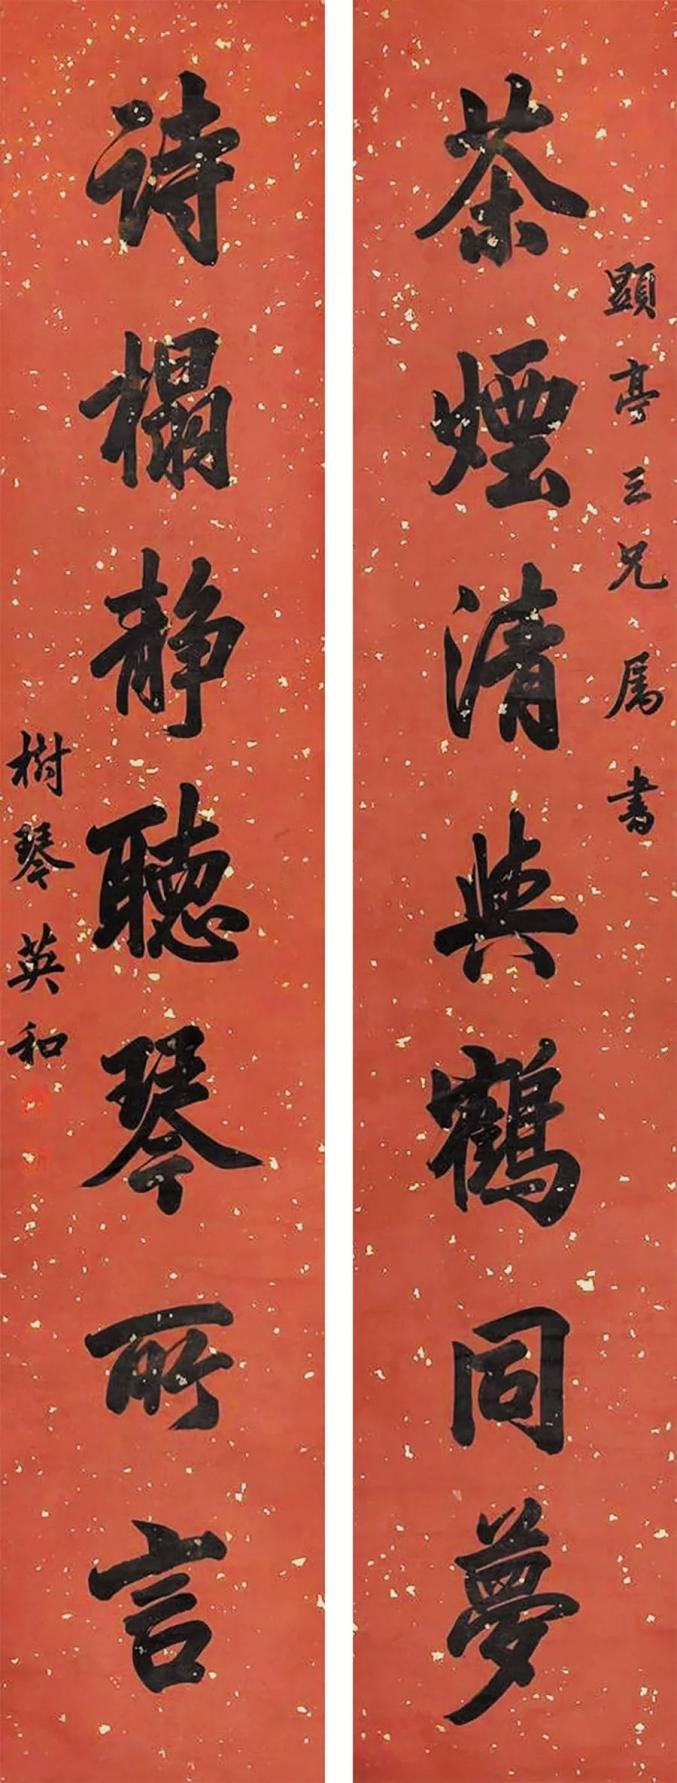 顯亭三兄属書
茶煙清與鶴同夢
詩榻靜聽琴所言
樹琴英和